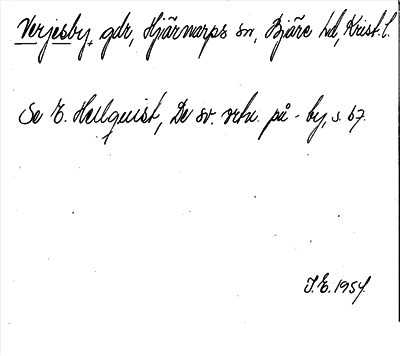 Verjesby, gdr, Hjärnarps sn, Bjäre hd, Krist. l.
Se E. Hellquist, De sv. ortn. på -by, s. 67.
J.E. 1954